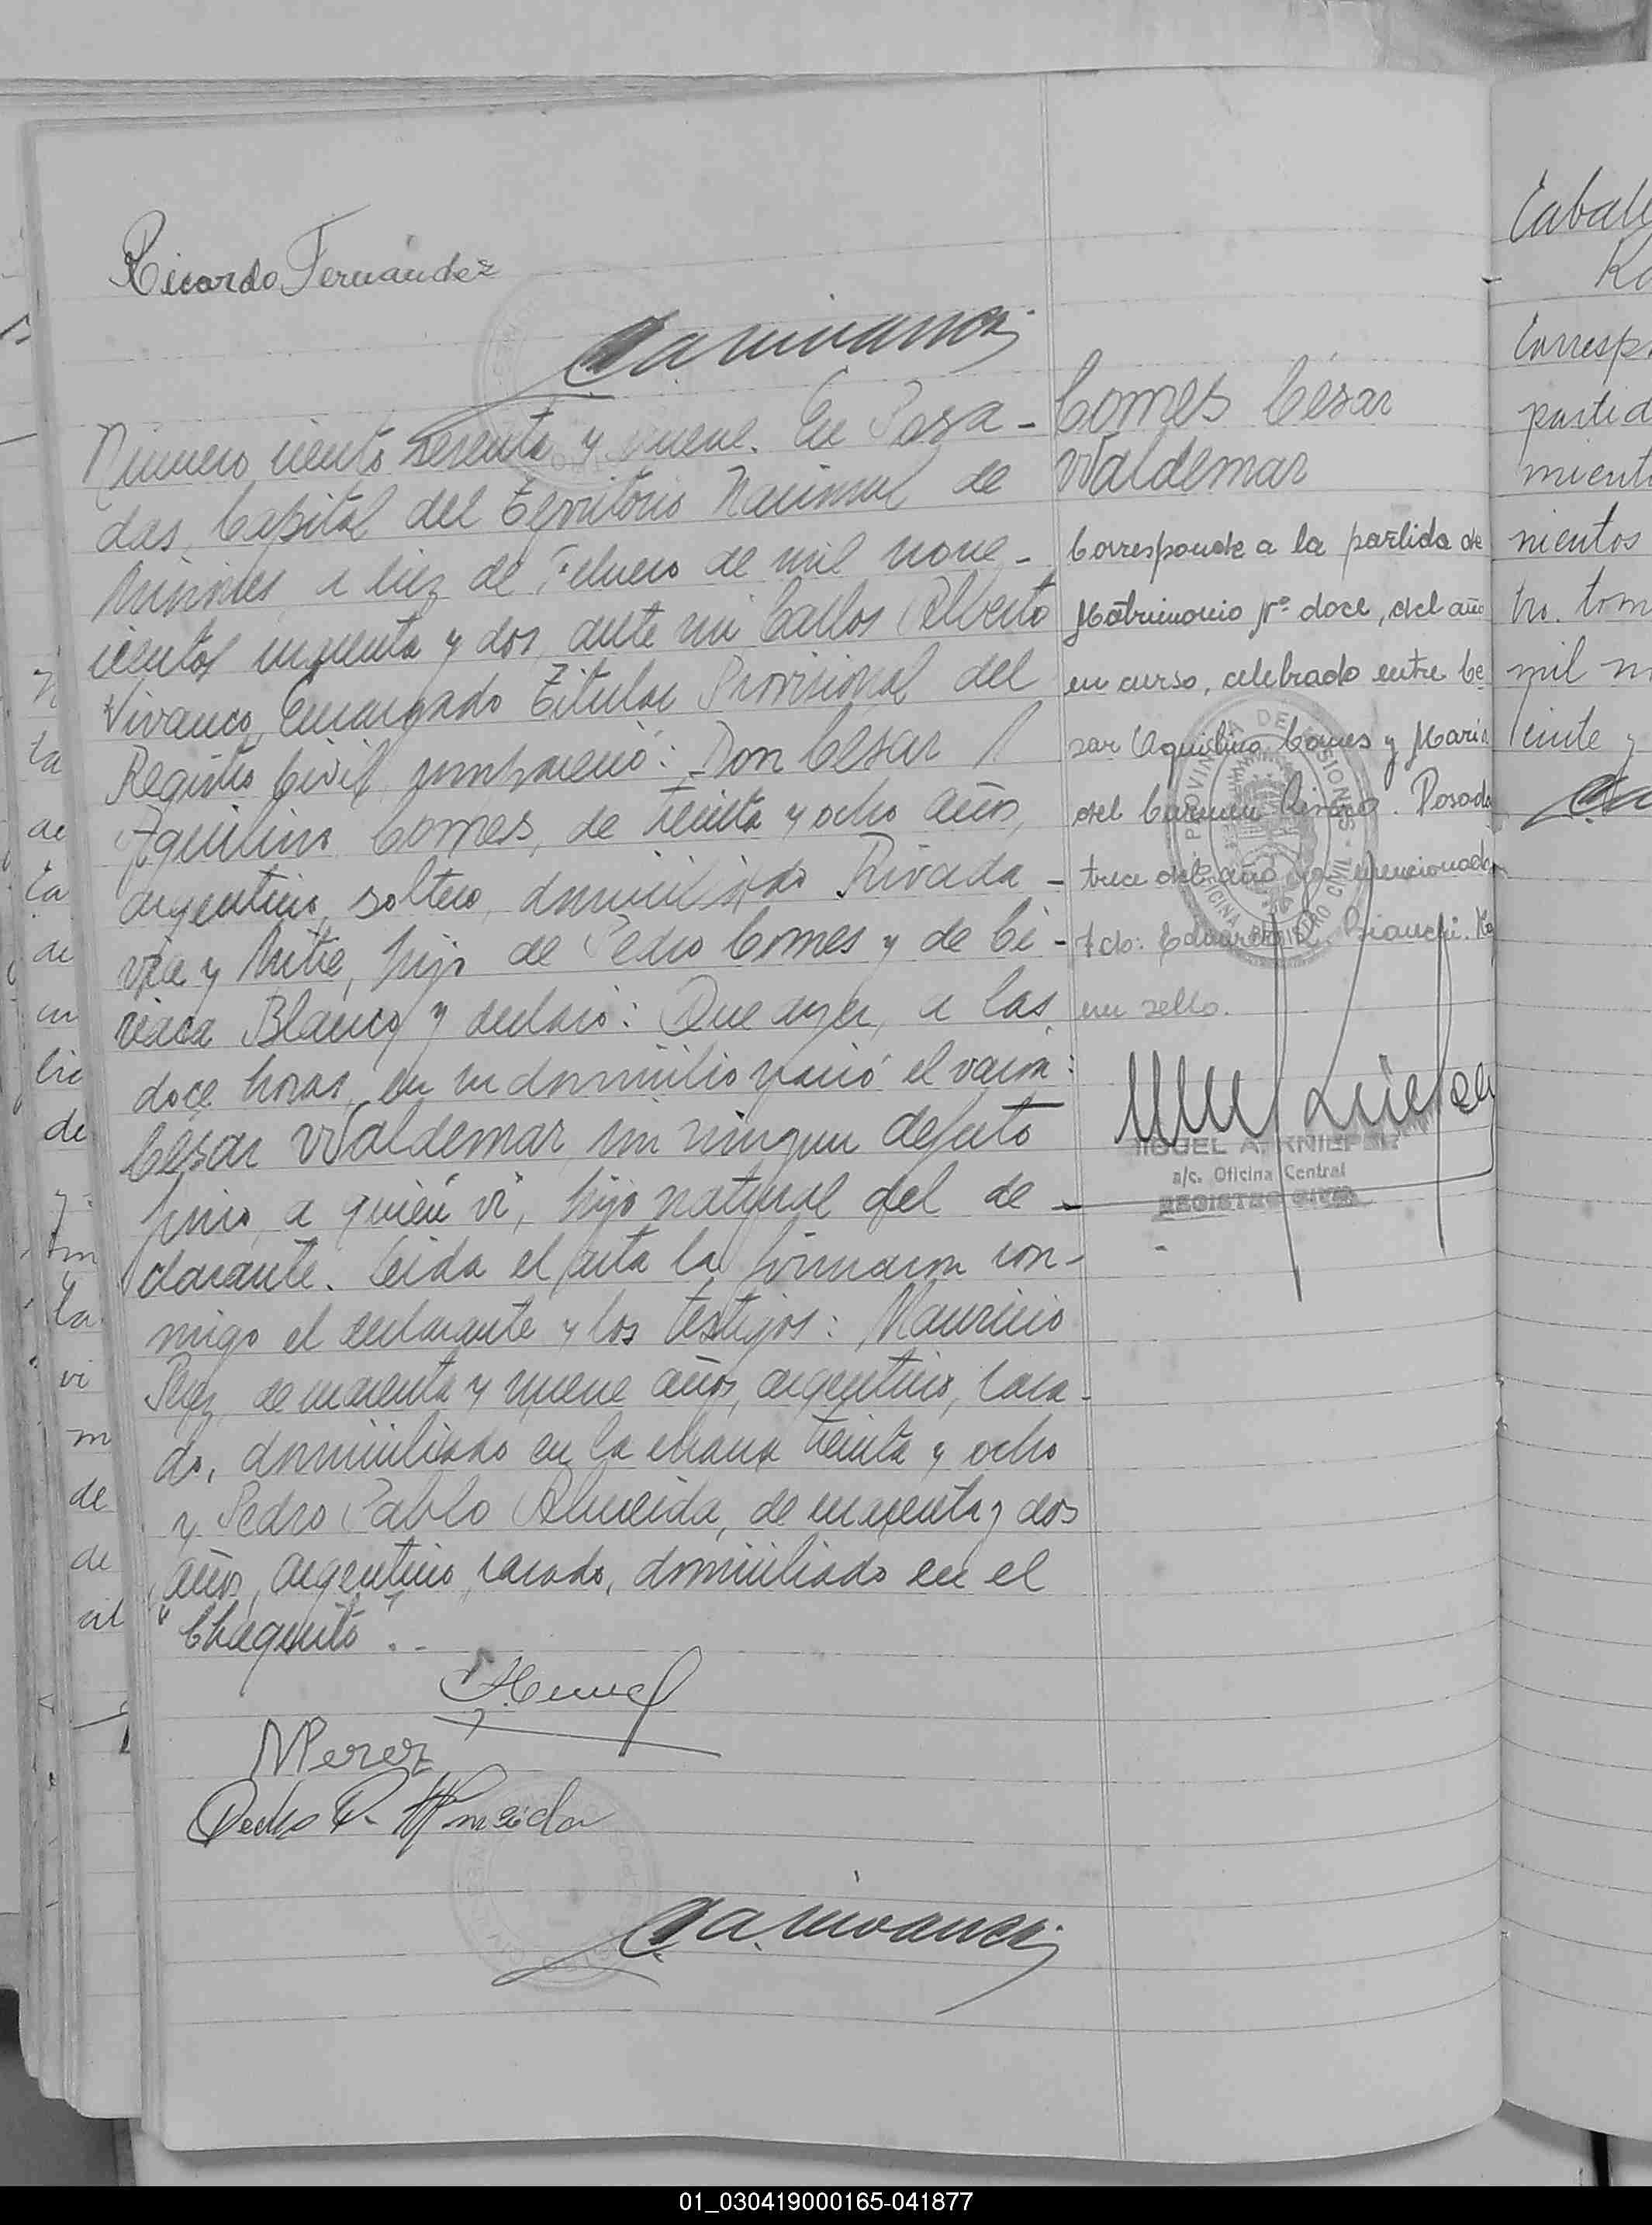 Ricardo Fernández
CAVivanco
Número ciento sesenta y nueve. En Posa-
das, Capital del Territorio Nacional de
Misiones, a diez de Febrero de mil nove-
cientos cincuenta y dos, ante mi Carlos Alberto
Vivanco, Encargado Titular Provisional del
Registro Civil, compareció: Don César
Aquilino Comes, de treinta y ocho años,
argentino, soltero, domiciliado Rivada-
via y Mitre, hijo de Pedro Comes y de Ci-
riaca Blanco y declaró: Que ayer, a las
doce horas, en su domicilio nació el varón:
César Waldemar, sin ningun defecto
físico, a quién ví, hijo natural del de-
clarante. Leida el acta la firmaron con-
migo el declarante y los testigos: Mauricio
de cuarenta y nueve años, argentino, casa-
do, domiciliado en la chacra treinta y ocho
y Pedro Pablo Almeida, de cuarenta y dos
años, argentino, casado, domiciliado en el
"Chaquito".-
MPerez
Pedro P. Almeida
CAVivanco
Comes César
Waldemar
Corresponde a la partida de
Matrimonio Nº doce, del año
en curso, celebrado entre Cé
sar Aquilino Comes y María
del Carmen . Posadas
trece del año ya mencionado
Fdo: Eduardo R. Bianchi. Ha
un sello.
PROVINCIA DE MISIONES
OFICINA REGISTRO CIVIL
MIGUEL A. KNIEPER
a/c. Oficina Central
REGISTRO CIVIL
Caball
Corresp
partid
mient
nientos
tro. tom
mil n
veinte y
01_030419000165-041877